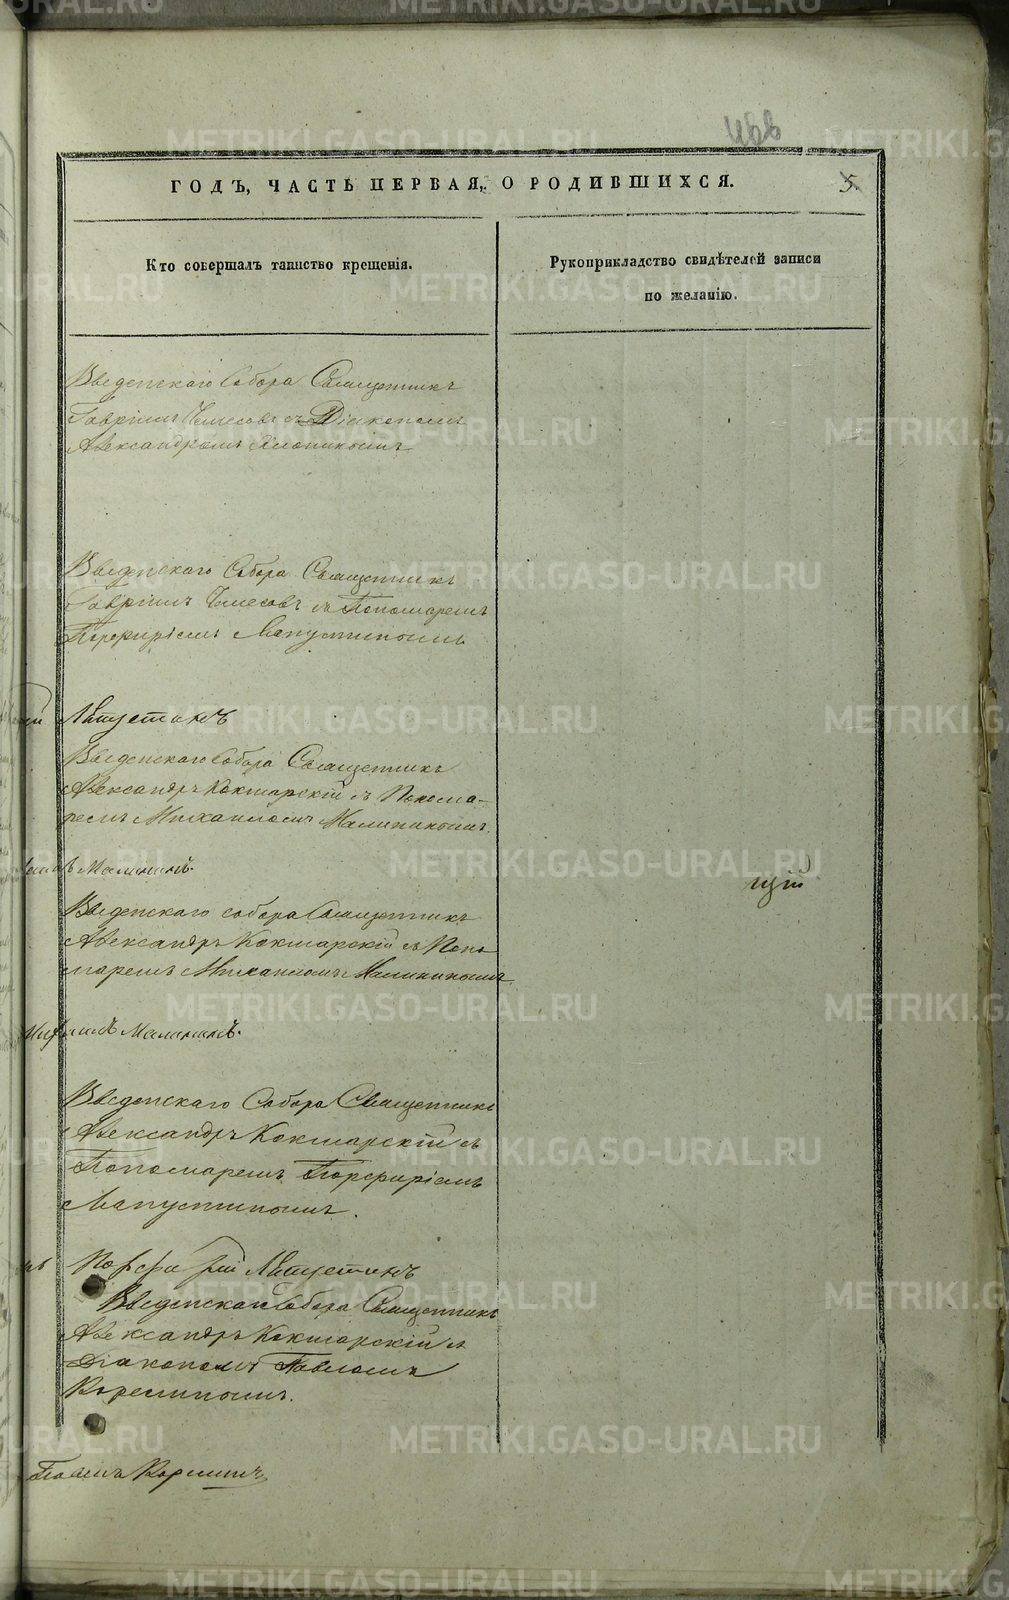 466
ГОДЪ, ЧАСТЬ ПЕРВАЯ, О РОДИВШИХСЯ.
5.
Кто совершалъ таинство крещенія.
Рукоприкладство свидѣтелей записи
по желанію.
Введенскаго Собора Священникъ
Гавріилъ Чемесовъ съ Діакономъ
Александромъ
Введенскаго Собора Священникъ
Гавріилъ Чемесовъ съ Пономаремъ
Порфиріемъ Лапустинымъ
Лапустинъ
Введенскаго Собора Священникъ
Александръ Кокшарскій съ Понома-
ремъ Михаиломъ Малининымъ.
Малининъ.
Введенскаго собора Священникъ
Александръ Кокшарскій съ Поно
маремъ Михаиломъ Малининымъ
Малининъ.
Введенскаго Собора Священникъ
Александръ Кокшарскій съ
Пономаремъ Порфиріемъ
Лапустинымъ.
Порфирій Лапустинъ
Введенскаго Собора Священникъ
Александръ Кокшарскій съ
Діакономъ Павломъ
Кореминымъ.
Павелъ Кореминъ
щій
METRIKI.GASO-URAL.RU